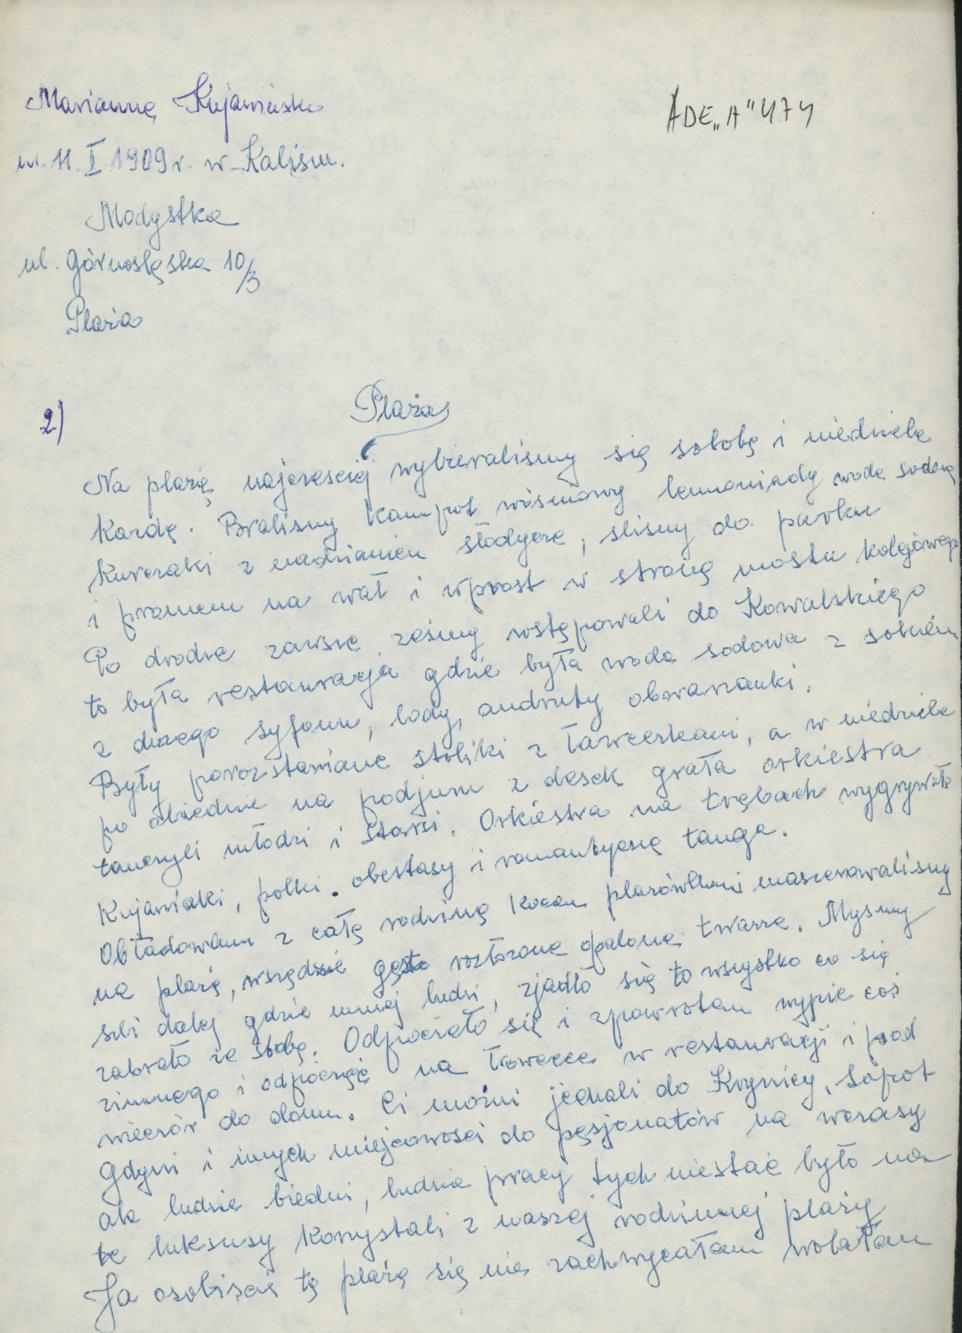 Mariannę Kujawińska
ADE „A" 474
ur. 11. I 1909 r. w Kaliszu.
Modystka
ul. Górnoslęska 10/3
Plaża
2)
Plaża
Na plażę najczęsciej wybieralismy się sobotę i niedziele
Każdę. Bralismy kompot wisniowy lemoniady wodę sodową
kurczaki z nadzianiem słodycze, slismy do parku
i promem na wał i wprost w stronę mostu kolejowego
Po drodze zawsze zesmy wstępowali do Kowalskiego
to była restauracja gdzie była woda sodowa z sokiem
z dużego syfonu, lody, andruty obwarzanki.
Były porozstawiane stoliki z ławeczkami, a w niedziele
po obiedzie na podjum z desek grała orkiestra
tanczyli młodzi i starsi. Orkiestra na trębach wygrywała
Kujawiaki, polki. obertasy i romantyczne tanga.
Obładowani z całę rodzinę kocem plażówkami maszerowalismy
na plażę, wszędzie gęsto rozłożone opalone twarze. Mysmy
szli dalej gdzie mniej ludzi, zjadło się to wszystko co się
zabrało ze sobę. Odpoczęło się i zpowrotem wypic coś
zimnego i odpoczęć na ławecce w restauracji i pod
wieczór do domu. Ci możni jechali do Krynicy, Sopot
Gdyni i innych miejcowosci do pęsjonatów na wczasy
ale ludzie biedni, ludzie pracy tych niestać było na
te luksusy korzystali z naszej rodzinnej plaży
Ja osobiscie tę plażę się nie zachwycałam wolałam